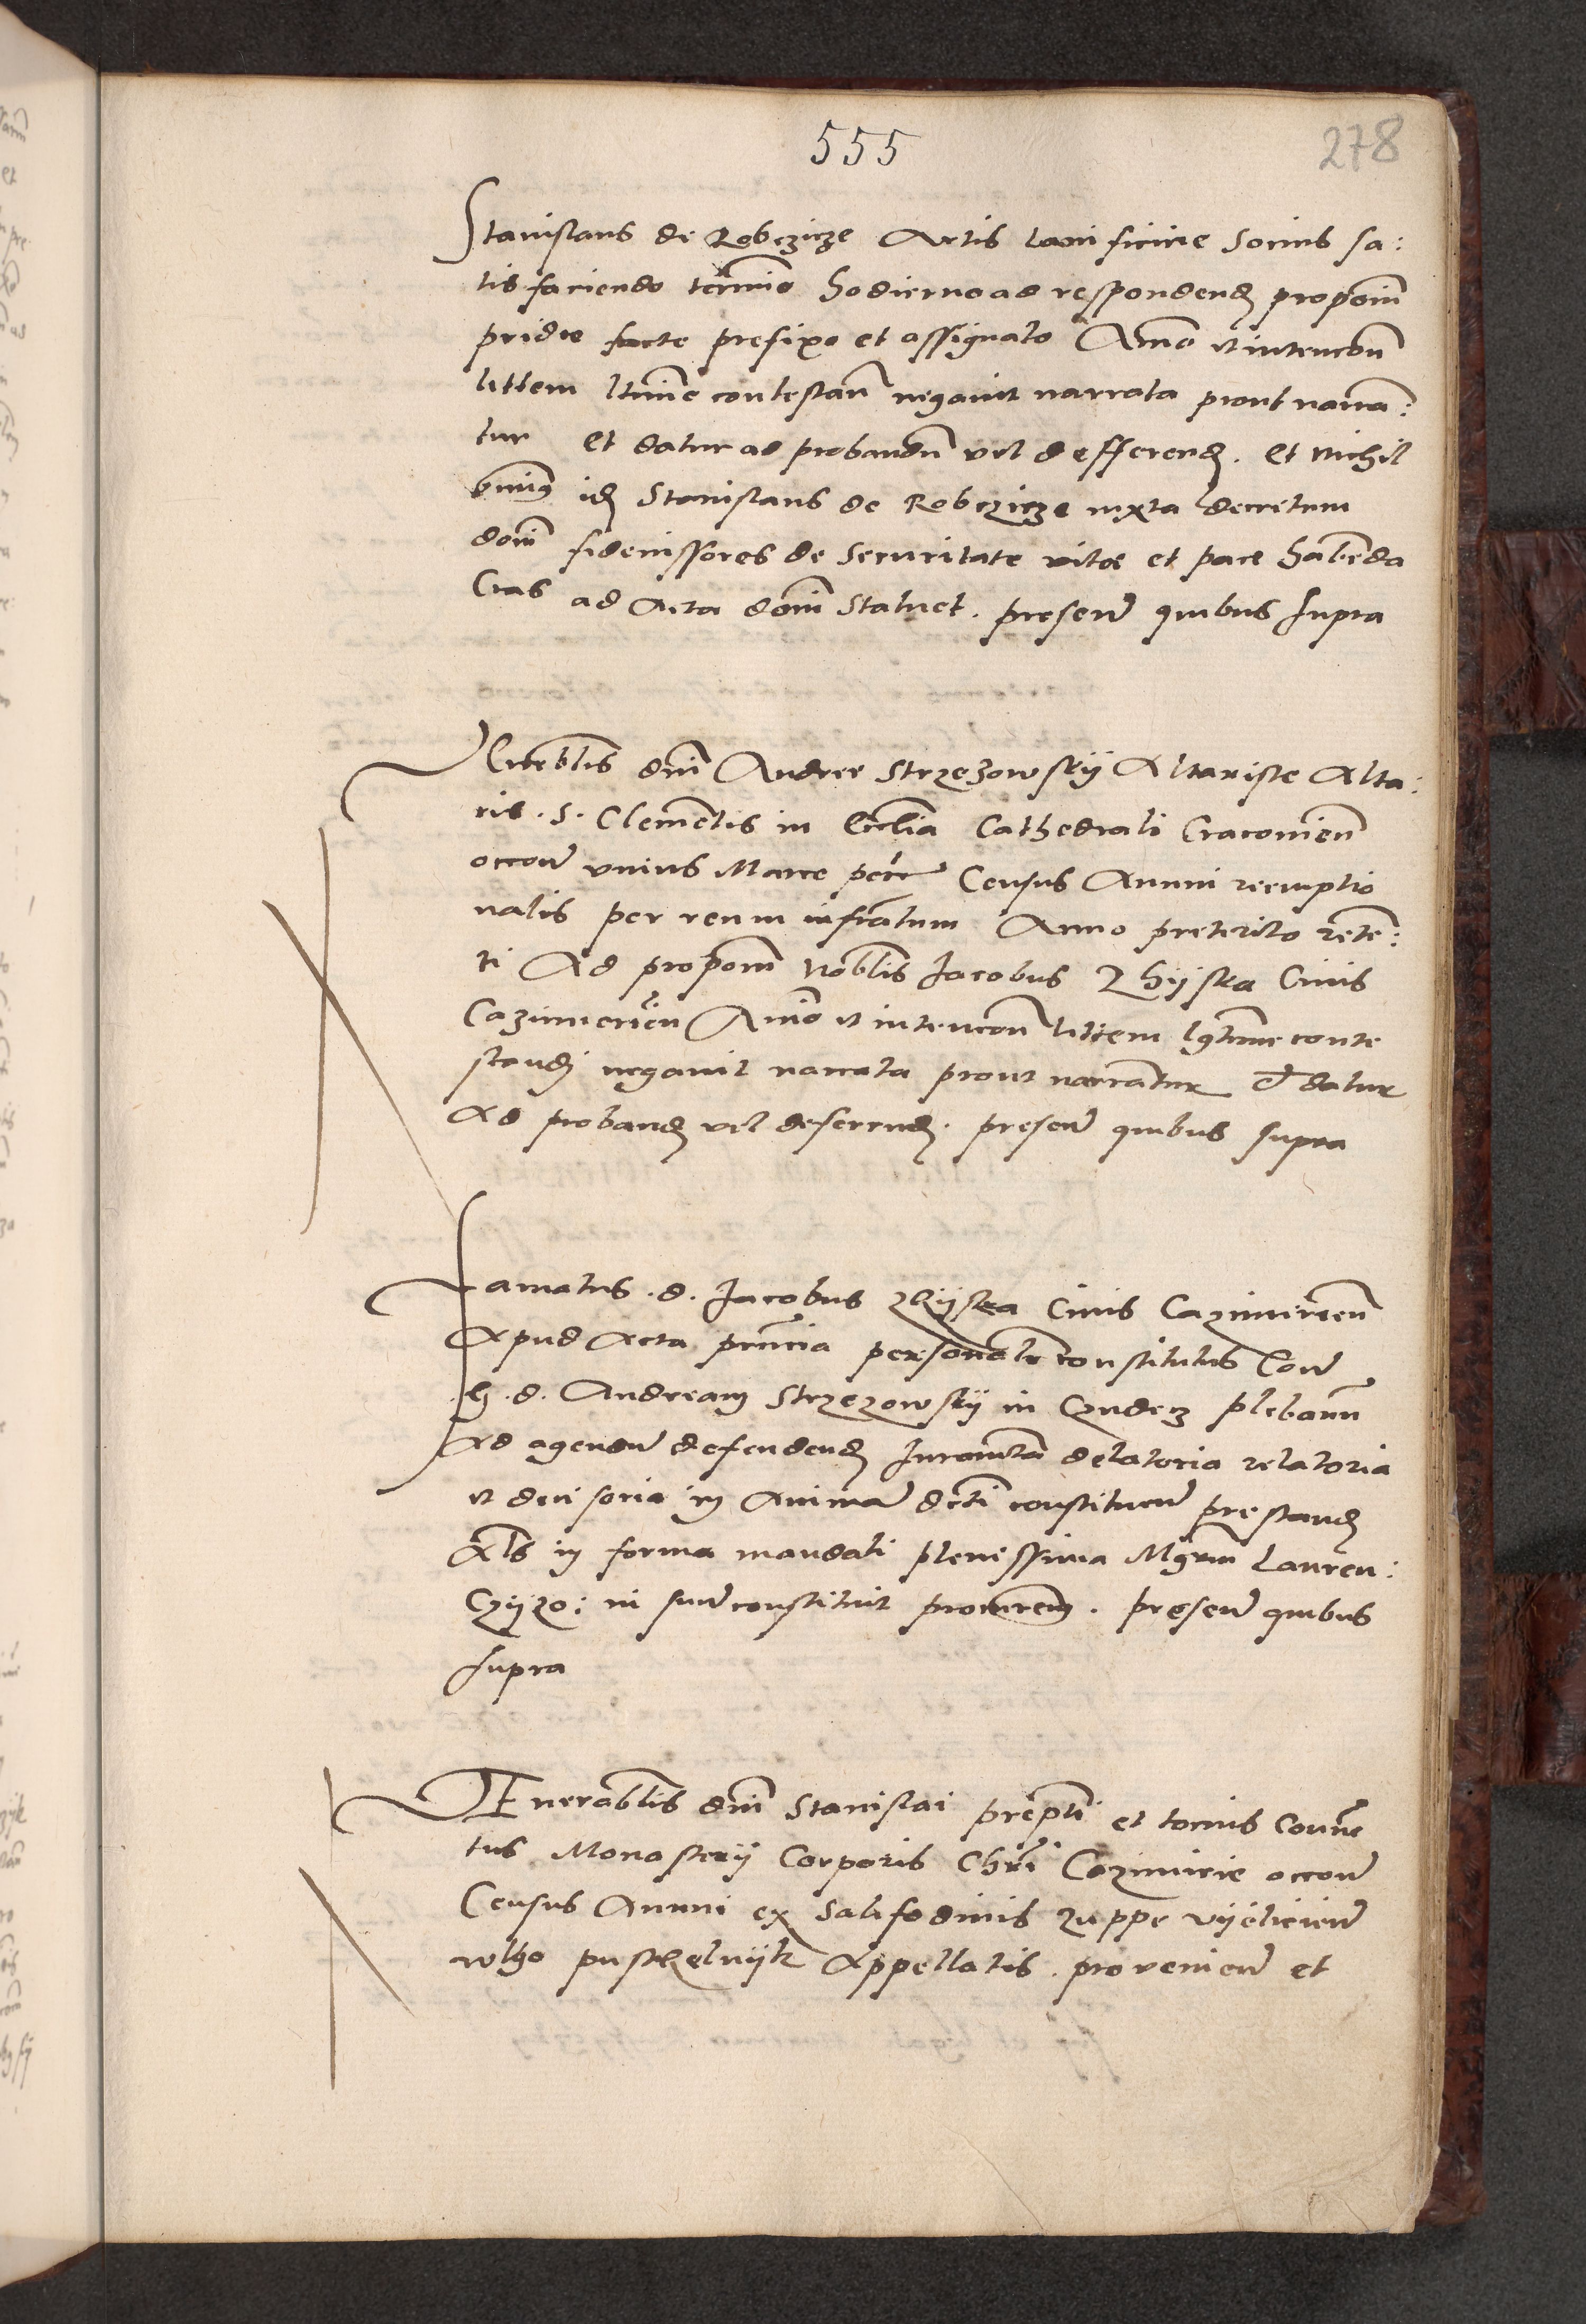 555
278
Stanislaus de Robczicze Artis lanificine Socius sa:
tisfaciendo termino hodierno ad respondend propom
pridie facte prefixo et assignato Animo et intencion
littem ltime contestan negavit narrata prout narra:
tur et datur ad probandum vel defferend. Et nichil
ominus idem Stanislaus de Robczicze iuxta decretum
domi fideiussores de Securitate vitae et pace habenda
Cras ad Acta domi Statuet. presen quibus supra
Venerablis dni Andree Strzezowskij Altariste Alta:
ris. S. Clementis in Ecclia Cathedrali Cracovien
occon unius Marce pec Census Annui reemptio
nalis per reum infratum Anno preterito reten:
ti Ad propom Noblis Jacobus Zhijska Civis
Cazimerien Animo et intencon littem lgtime conte
standi negavit narrata prout narrantur Et datur
Ad proband vel deferend. presen quibus supra
Famatus. d. Jacobus Zhijska Civis Cazimirien
Apud Acta pncia personalr constitutus Con
H. d. Andream Strzezowskij in Czudecz plebanum
Ad agendum defendend Juramta delatoria relatoria
et decisoria in Animam dcti constituen prestand
Als in forma mandati plenissima Mgrum Lauren:
Czijzo: in suum constituit procurem. presen quibus
supra
Venerablis dni Stanislai prepti et tocius Conven
tus Monasterij Corporis Chri Cazimirie occon
Census Annui ex Salifodinis zuppe vijelicien
vlgo puszkelnijk Appellatis. provenien et